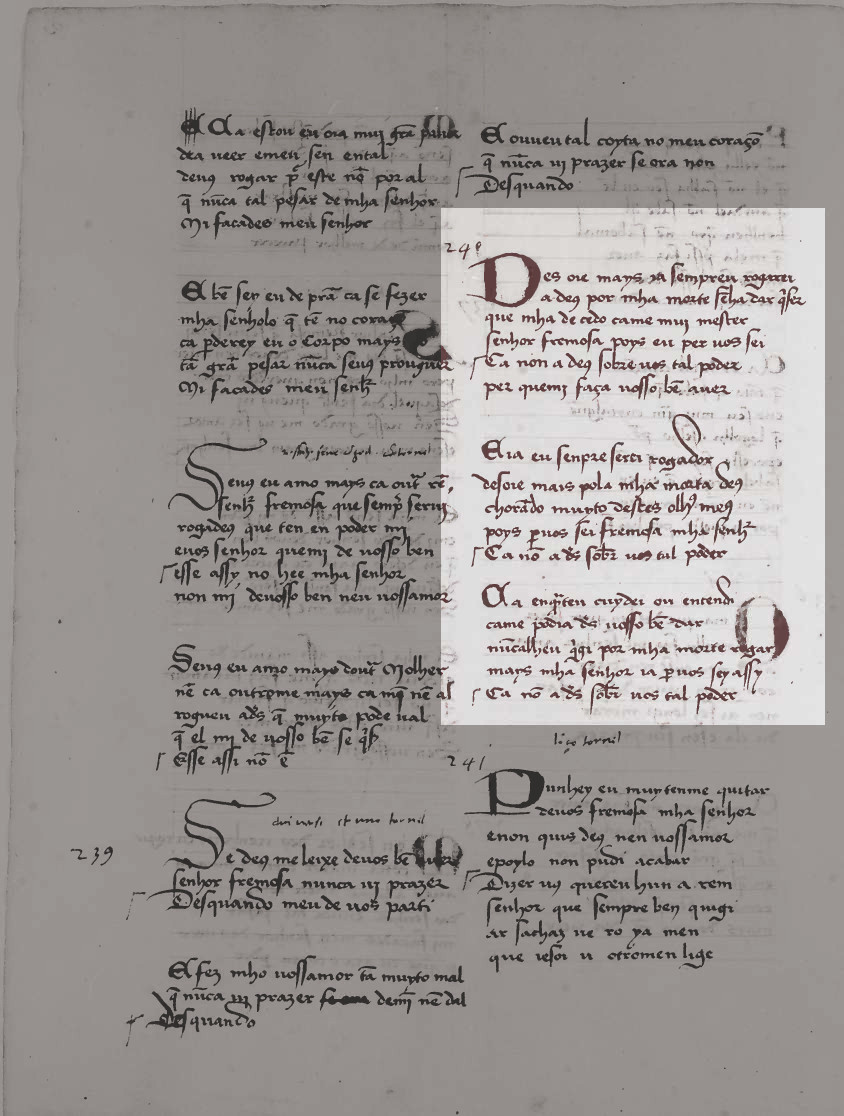 A Ca estou en oia mui grã
dea veer e meu sen ental
deuꝯ rogar ꝑ este nõ por al
q̃ nũca tal pesar de mha senhor
Mi facades meu senhor
E bẽ sey eu de prã ca se fezer
mha senholo q̃ tẽ no coraçõ
ca ꝑderey eu o corpo mays
tã grã pesar nũca seuꝯ prouguer
Mi facades meu senhr̃
Seuꝯ eu amo mays ca outr̃ rẽ
senhr̃ fremosa que semp̃ serui
rogadeꝯ que ten en poder mi
e uos senhor quemi de uosso ben
esse assy no hee mha senhor
non mi deuosso ben neu uossamor
Seuꝯ eu amo mays doutr̃ Molher
nẽ ca outrome mays ca mꝯ nẽ al
rogueu ad̃s q̃ muyto pode ual
q̃ el mi de uosso bẽ se q̃s̃
Esse assi nõ ẽ
239
Se deꝯ me leixe deuos bẽ auer
senhor fremosa nunca ui prazer
Desquando meu de uos parti
E fez mho uossamor tã muyto mal
q̃ nũca ui prazer demĩ nẽ dal
Desquando
E ouueu tal coyta no meu coraçõ
q̃ nũca ui prazer se ora non
Desquando
240
Des oie mays ia sempreu rogarei
a deꝯ por mha morte sẽha dar q̃ser
que mha de cedo came mui mester
senhor fremosa poys eu per uos sei
Ca non a deꝯ sobre uos tal poder
per quemi faça uosso bẽ auer
E ia eu senpre serei rogador
desoie mais pola mha morta deꝯ
chorãdo muyto destes olhꝯ meꝯ
poys ꝑuos sei fremosa mha senhr̃
Ca nõ a d̃s sobr̃ uos tal poder
Ca enq̃nteu cuydei ou entendi
came podia d̃s uosso bẽ dar
nũcalheu q̃gi por mha morte rogar
mays mha senhor ia ꝑuos sey assy
Ca nõ a d̃s sobr̃ uos tal poder
241
Punhey eu muytenme quitar
deuos fremosa mha senhor
e non quis deꝯ nen uossamor
e poylo non pudi acabar
Dizer uꝯ quereu hun a rem
senhor que sempre ben quigi
ar sachaz ue ro ya men
que ie soi u otromen lige